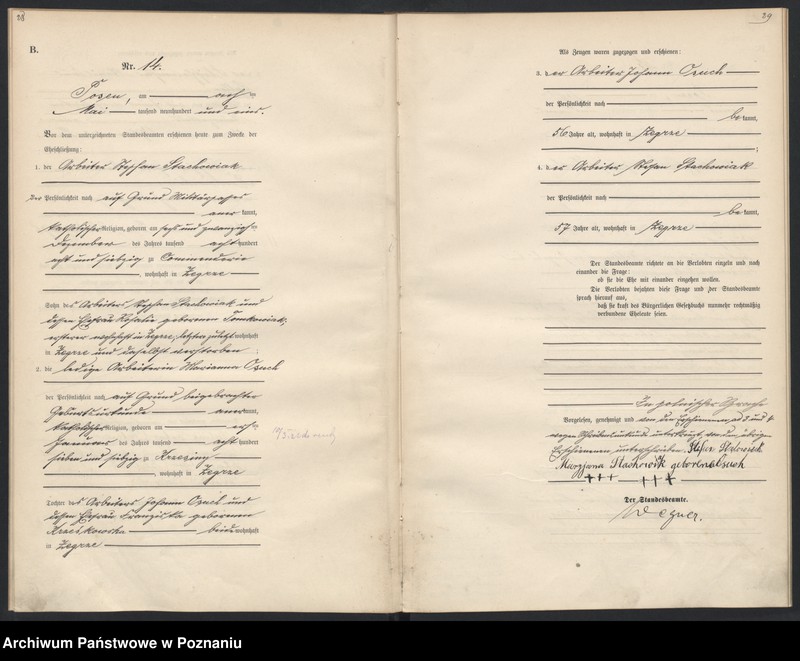 28
B.
Nr. 14.
Posen, am acht
Mai tausend neunhundert und eins.
Vor dem unterzeichneten Standesbeamten erschienen heute zum Zwecke der
Eheschließung:
1. der Arbeiter Stephan Stachowiak
der Persönlichkeit nach auf Grund Militärpasses
anerkannt,
katholischer Religion, geboren am sechs und zwanzigsten
Dezember des Jahres tausend achthundert
acht und siebzig zu Commenderie
, wohnhaft in Zegrze
Sohn des Arbeiters Stephan Stachowiak und
dessen Ehefrau Rosalie geborenen Tomkowiak,
ersterer wohnhaft in Zegrze, letztere zuletzt wohnhaft
in Zegrze und daselbst verstorben ;
2. die ledige Arbeiterin Marianna Czuch
der Persönlichkeit nach auf Grund beigebrachter
Geburtsurkunde anerkannt,
katholischer Religion, geboren am
Januar des Jahres tausend achthundert
sieben und siebzig zu
, wohnhaft in Zegrze
Tochter des Arbeiters Johann und
dessen Ehefrau Franziska geborenen
beide wohnhaft
in Zegrze
29
Als Zeugen waren zugezogen und erschienen:
3. der Arbeiter Johann Czuch
der Persönlichkeit nach
bekannt,
56 Jahre alt, wohnhaft in Zegrze
;
4. der Arbeiter Stefan Stachowiak
der Persönlichkeit nach
bekannt,
57 Jahre alt, wohnhaft in Zegrze
Der Standesbeamte richtete an die Verlobten einzeln und nach
einander die Frage:
ob sie die Ehe mit einander eingehen wollen.
Die Verlobten bejahten diese Frage und der Standesbeamte
sprach hierauf aus,
daß sie kraft des Bürgerlichen Gesetzbuchs nunmehr rechtmäßig
verbundene Eheleute seien.
In polnischer Sprache
Vorgelesen, genehmigt und von den Erschienenen ad 3 und 4
wegen Schreibensunkunde unterkreuzt, von den übrigen
Erschienenen unterschrieben.
Maryjana Stachowik
+++ +++
Der Standesbeamte.
Wegner.
Archiwum Państwowe w Poznaniu